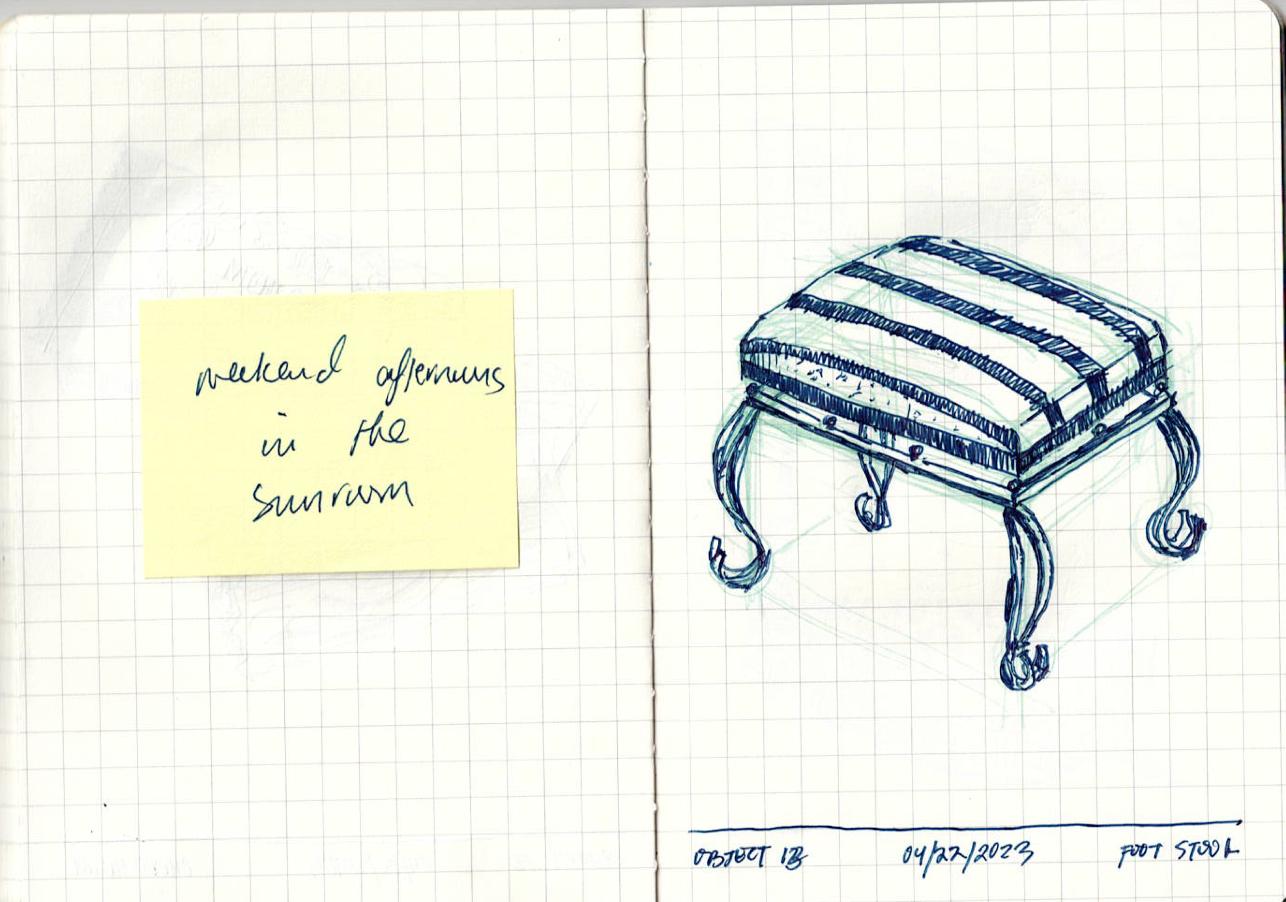 weekend afternoons
in the
sunroom
OBJECT 13 04/22/2023 FOOT STOOL